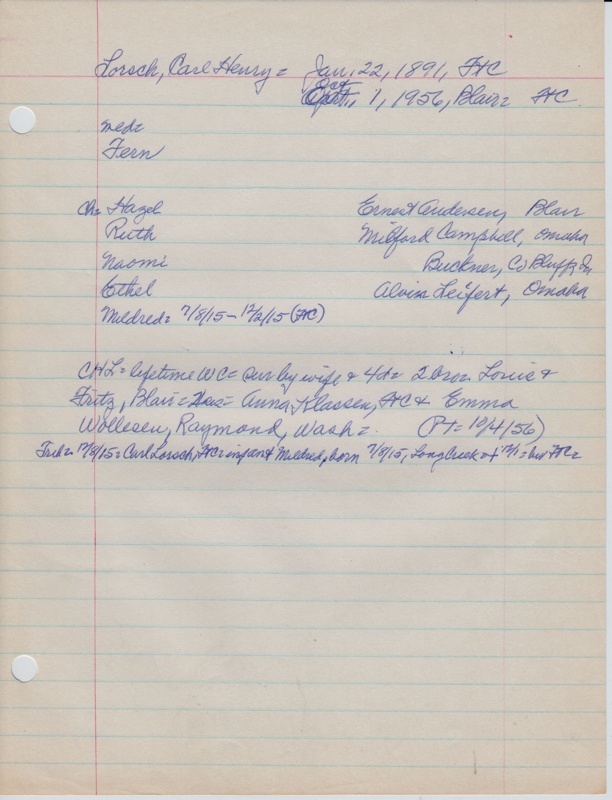 Lorsch, Carl Henry = Jan. 22, 1891, FtC
Oct
Sept. 1, 1956, Blair = FtC.
med=
Fern
Ch= Hazel Ernest Andersen, Blair
Ruth Milford Campbell, Omaha
Naomi Buckner, Co Bluffs, Ia
Ethel Alvin Seifert, Omaha
Mildred= 7/8/15 - 12/2/15 (FtC)
CHL= lifetime WC= sur by wife & 4d= 2 bros. Louie &
Fritz, Blair= 2 sis= Anna Klassen, FtC & Emma
Wollesen, Raymond, Wash=. (PT= 10/4/56)
Trib= 12/8/15= Carl Lorsch, FtC= infant Mildred, born 7/8/15, Long Creek & + 12/1= bur FtC=